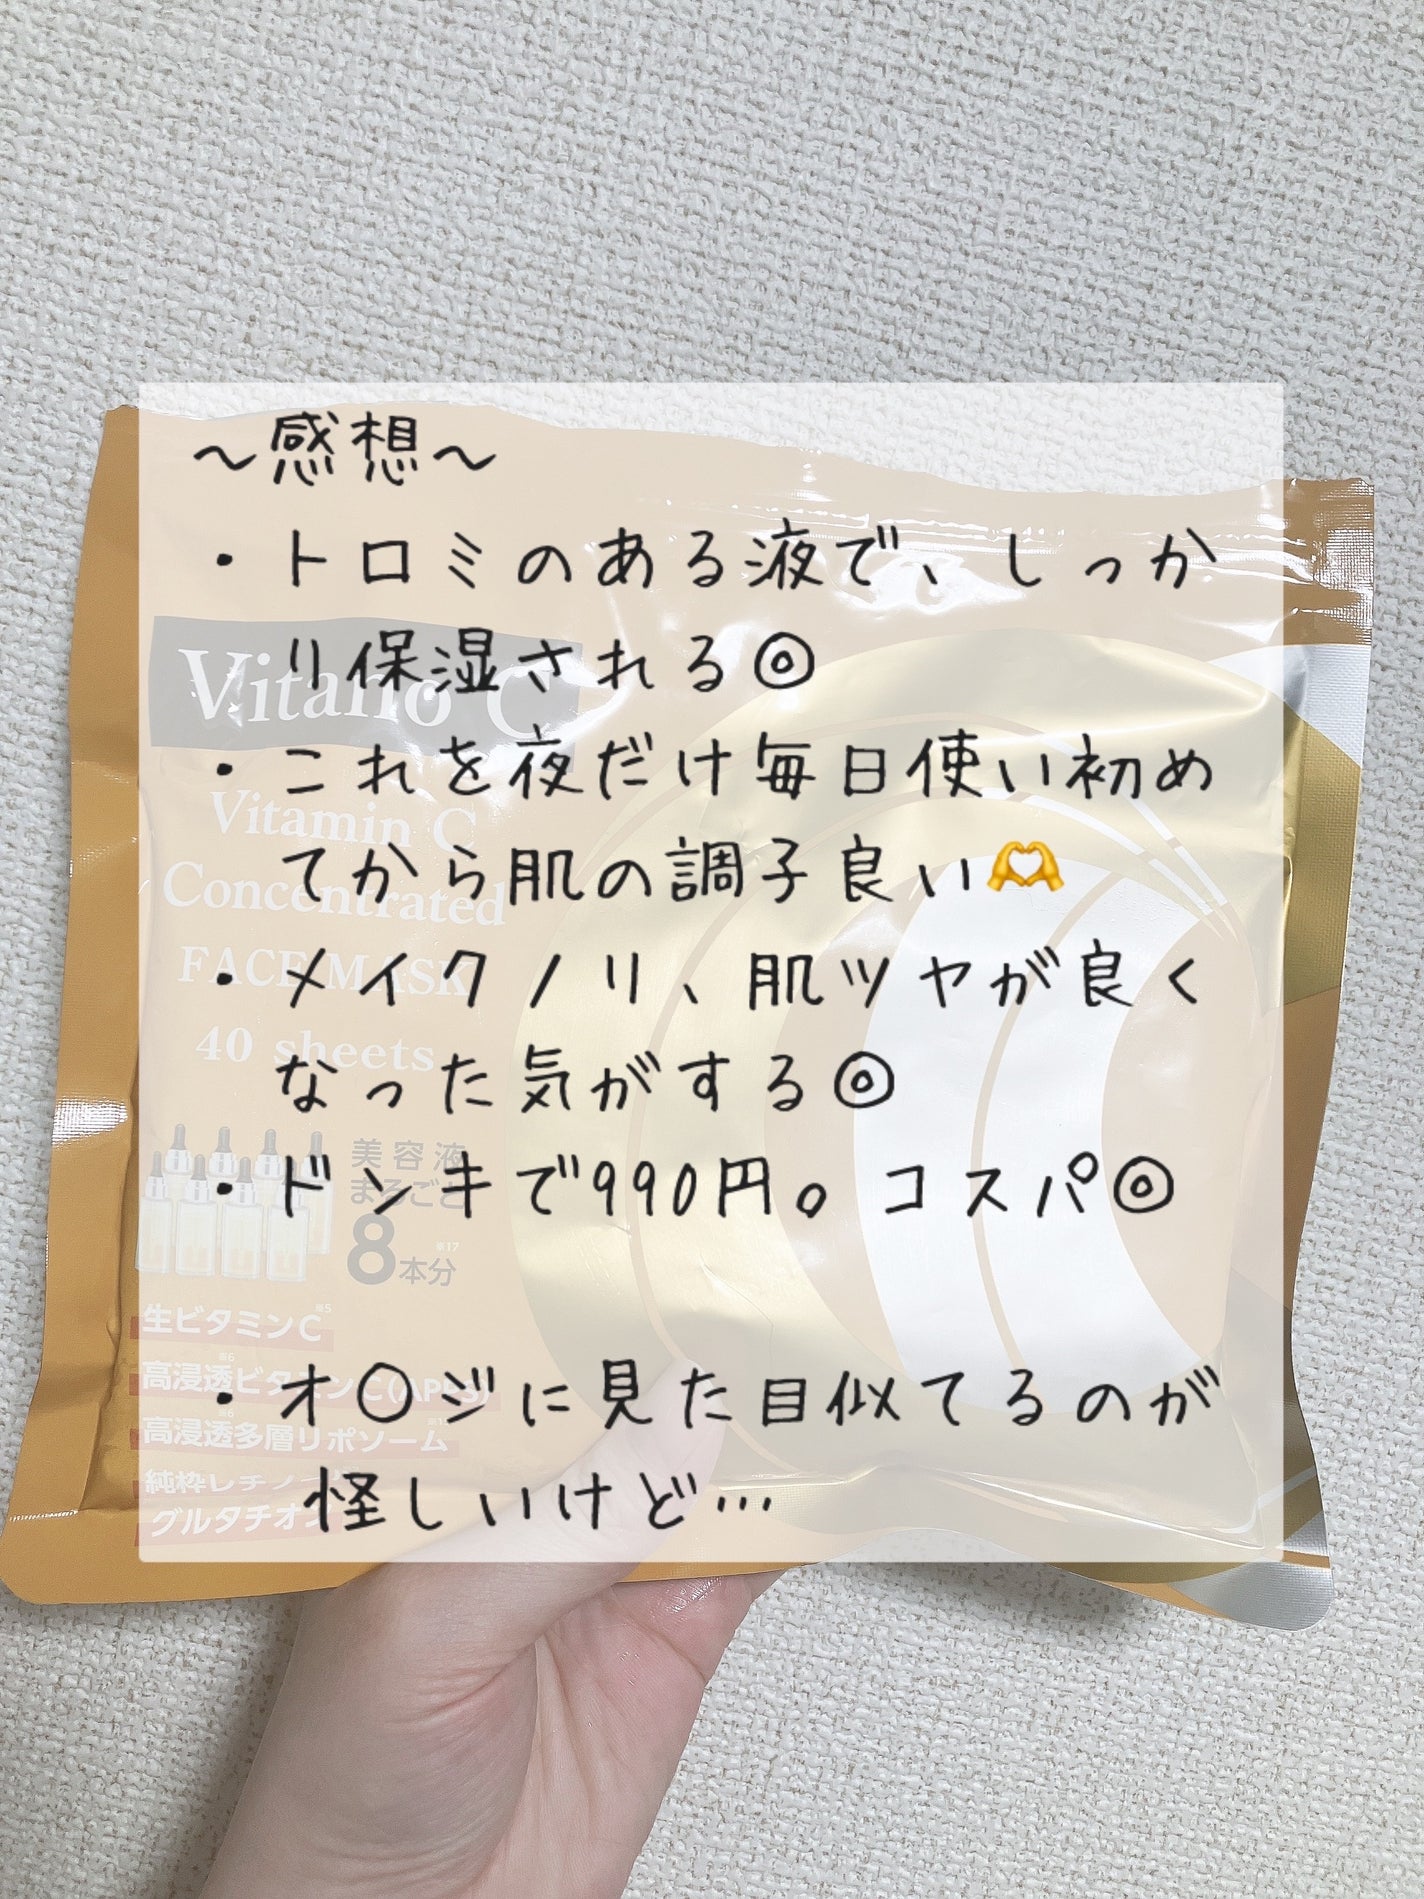 ～感想～
・トロミのある液で、しっか
り保湿される◎
・これを夜だけ毎日使い初め
てから肌の調子良い🫶
・メイクノリ、肌ツヤが良く
なった気がする◎
・ドンキで990円。コスパ◎
・オ〇ジに見た目似てるのが
怪しいけど…
Vitano C
Vitamin C
Concentrated
FACE MASK
40 sheets
美容液
まるごと
8本分
※17
生ビタミンC
※5
高浸透ビタミンC(APPS)
※6
高浸透多層リポソーム
純粋レチノ
グルタチオン